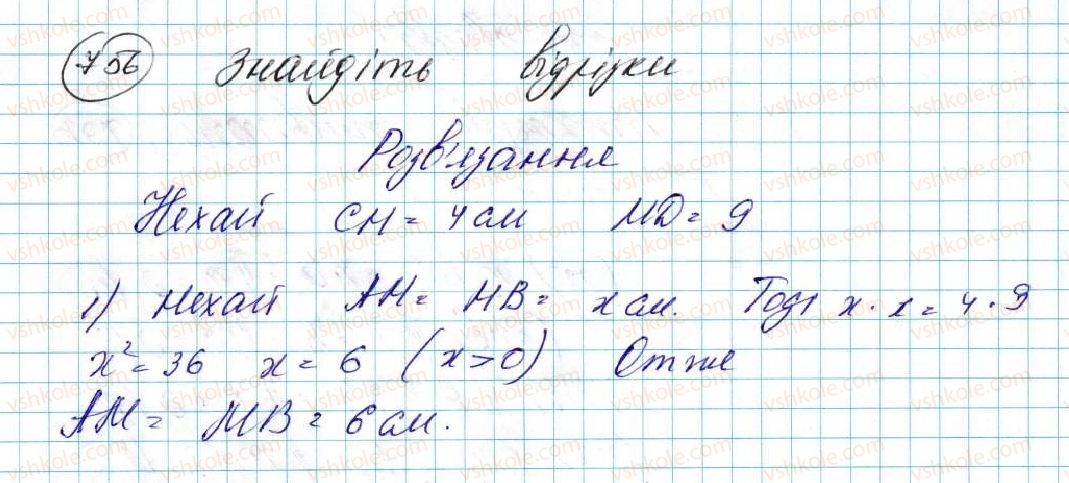 756 Знайдіть відрізки
Розв'язання
Нехай CH = 4 см MD = 9
1) Нехай AH = HB = x см. Тоді x · x = 4 · 9
x² = 36 x = 6 (x > 0) Отже
AM = MB = 6 см.